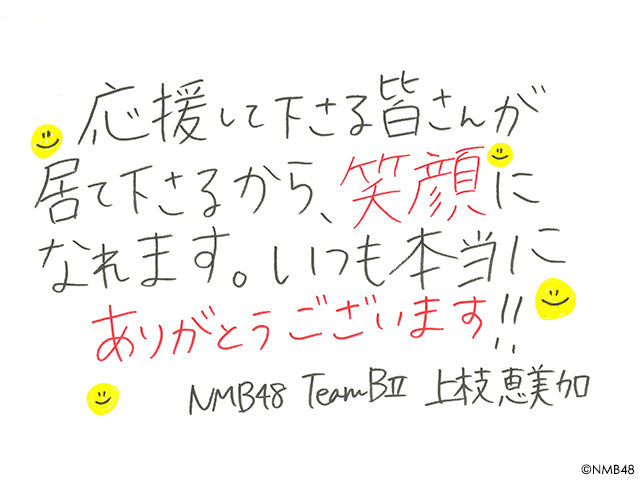 応援して下さる皆さんが
居て下さるから、笑顔に
なれます。いつも本当に
ありがとうございます!!
NMB48 TeamBII 上枝恵美加
©NMB48